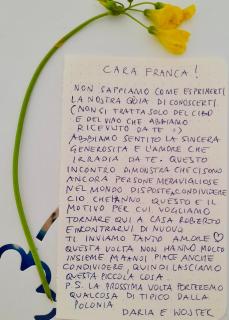 CARA FRANCA!
NON SAPPIAMO COME ESPRIMERTI
LA NOSTRA GIOIA DI CONOSCERTI.
(NON SI TRATTA SOLO DEL CIBO
E DEL VINO CHE ABBIAMO
RICEVUTO DA TE :)
ABBIAMO SENTITO LA SINCERA
GENEROSITÀ E L'AMORE CHE
IRRADIA DA TE. QUESTO
INCONTRO DIMONSTRA CHE CI SONO
ANCORA PERSONE MERAVIGLIOSE
NEL MONDO DISPOSTE A CONDIVIDERE
CIO CHE HANNO. QUESTO E IL
MOTIVO PER CUI VOGLIAMO
TORNARE QUI A CASA ROBERTO
E INCONTRARVI DI NUOVO
TI INVIAMO TANTO AMORE ♡
QUESTA VOLTA NON HANNO MOLTO
INSIEME MA A NOI PIACE ANCHE
CONDIVIDERE, QUINDI LASCIAMO
QUESTA PICCOLA COSA.
P.S. LA PROSSIMA VOLTA PORTEREMO
QUALCOSA DI TIPICO DALLA
POLONIA
DARIA E WOJTEK